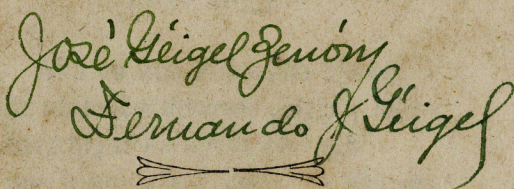 José Géigel Zenón
Fernando J Géigel